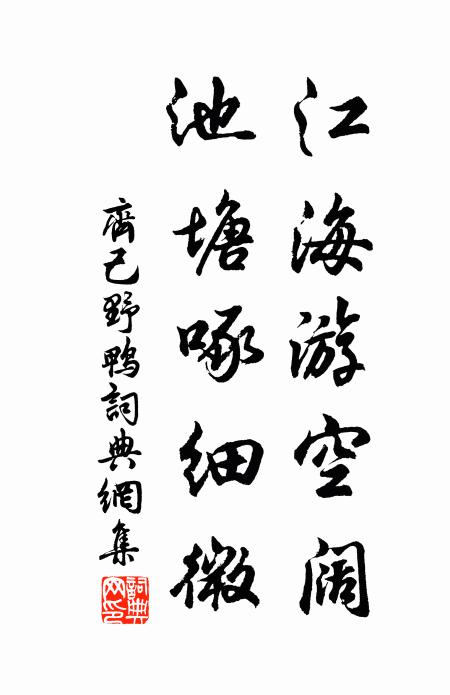 江海游空阔
池塘啄细微
齊己野鴨詞典網集
詞典网印